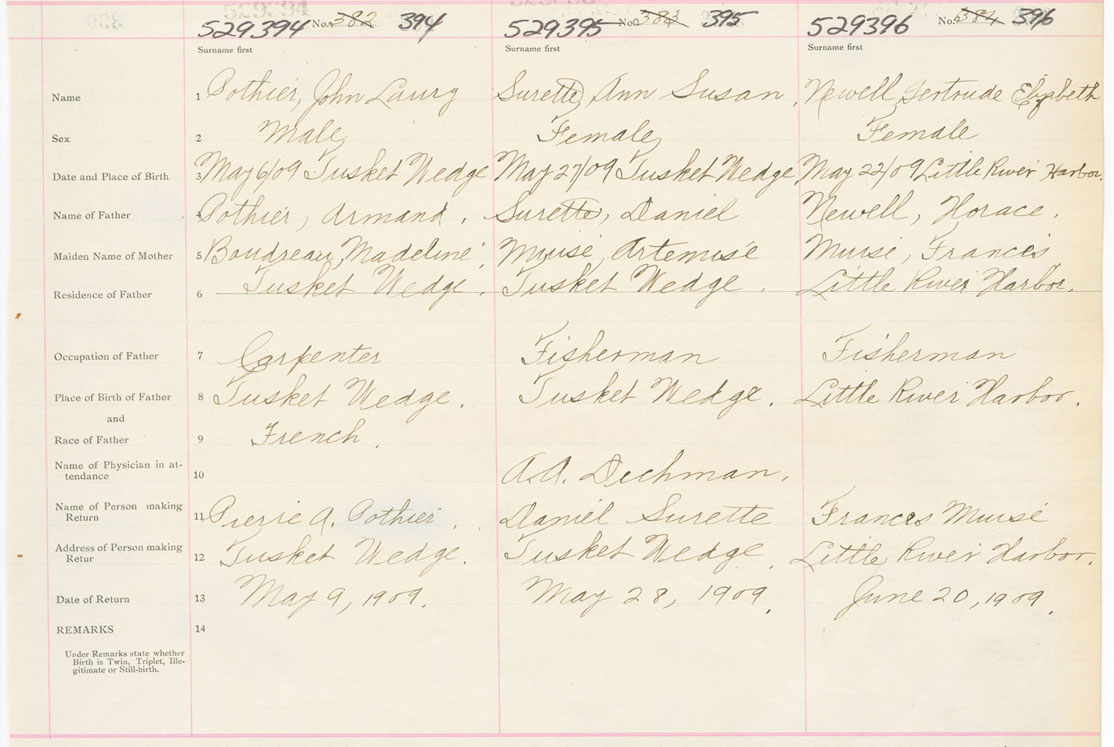 529394 No. 382 394 529395 No. 383 395 529396 No. 384 396
Surname first Surname first Surname first
Name 1 Pothier, John Laury Surette, Ann Susan Newell, Gertrude Elizabeth
Sex 2 Male Female Female
Date and Place of Birth 3 May 6/09 Tusket Wedge May 27/09 Tusket Wedge May 22/09 Little River Harbor.
Name of Father 4 Pothier, Armand. Surette, Daniel Newell, Horace.
Maiden Name of Mother 5 Boudreau, Madeline. Muise, Artemise Muise, Frances
Residence of Father 6 Tusket Wedge. Tusket Wedge. Little River Harbor.
Occupation of Father 7 Carpenter Fisherman Fisherman
Place of Birth of Father 8 Tusket Wedge. Tusket Wedge. Little River Harbor.
and
Race of Father 9 French.
Name of Physician in at-
tendance 10 A.A. Dechman.
Name of Person making
Return 11 Pierre A. Pothier. Daniel Surette Frances Muise
Address of Person making
Retur 12 Tusket Wedge. Tusket Wedge. Little River Harbor.
Date of Return 13 May 9, 1909. May 28, 1909. June 20, 1909.
REMARKS 14
Under Remarks state whether
Birth is Twin, Triplet, Ille-
gitimate or Still-birth.